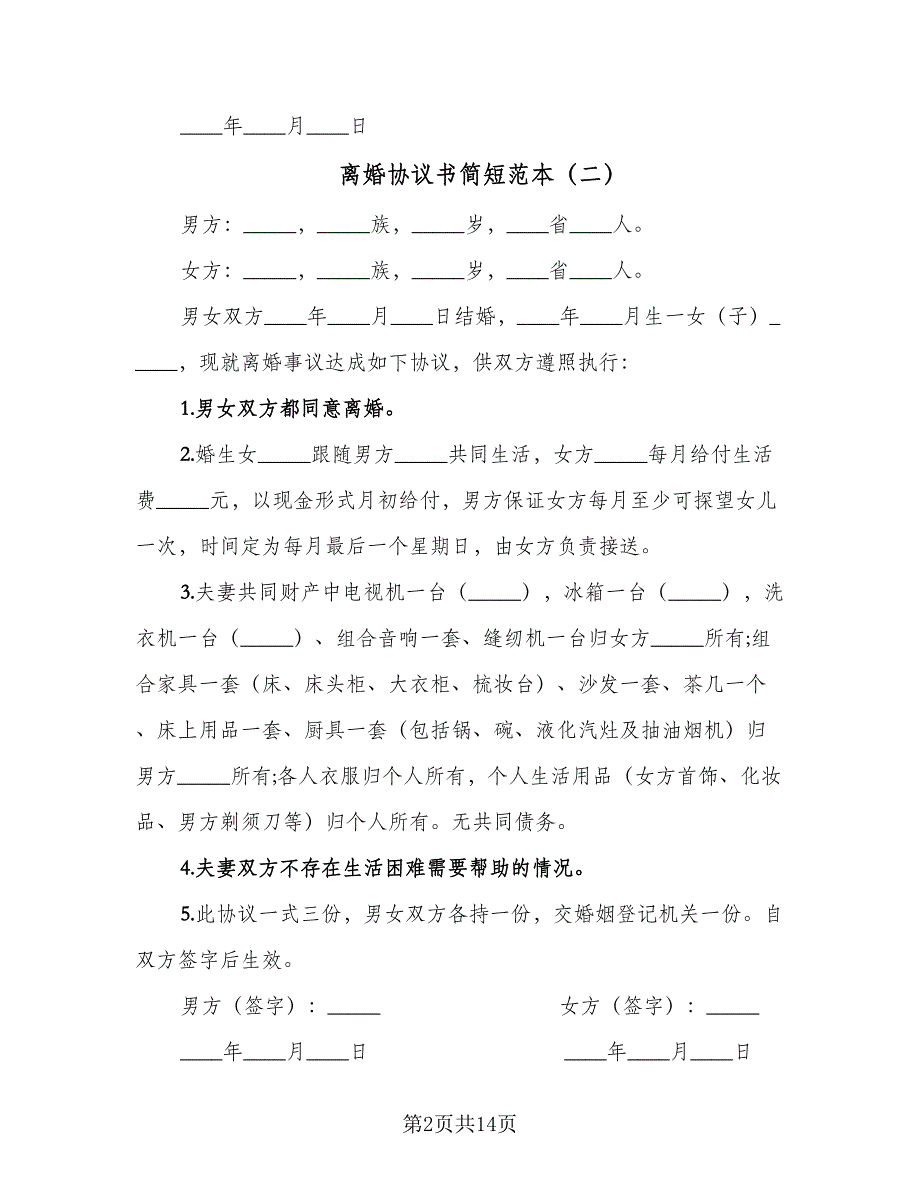 ____年____月____日
离婚协议书简短范本（二）
男方：_____，_____族，_____岁，____省____人。
女方：_____，_____族，_____岁，____省____人。
男女双方____年____月____日结婚，____年____月生一女（子）_
____，现就离婚事议达成如下协议，供双方遵照执行：
1.男女双方都同意离婚。
2.婚生女_____跟随男方_____共同生活，女方_____每月给付生活
费_____元，以现金形式月初给付，男方保证女方每月至少可探望女儿
一次，时间定为每月最后一个星期日，由女方负责接送。
3.夫妻共同财产中电视机一台（_____），冰箱一台（_____），洗
衣机一台（_____）、组合音响一套、缝纫机一台归女方_____所有;组
合家具一套（床、床头柜、大衣柜、梳妆台）、沙发一套、茶几一个
、床上用品一套、厨具一套（包括锅、碗、液化汽灶及抽油烟机）归
男方_____所有;各人衣服归个人所有，个人生活用品（女方首饰、化妆
品、男方剃须刀等）归个人所有。无共同债务。
4.夫妻双方不存在生活困难需要帮助的情况。
5.此协议一式三份，男女双方各持一份，交婚姻登记机关一份。自
双方签字后生效。
男方（签字）：_____ 女方（签字）：_____
____年____月____日 ____年____月____日
第2页共14页